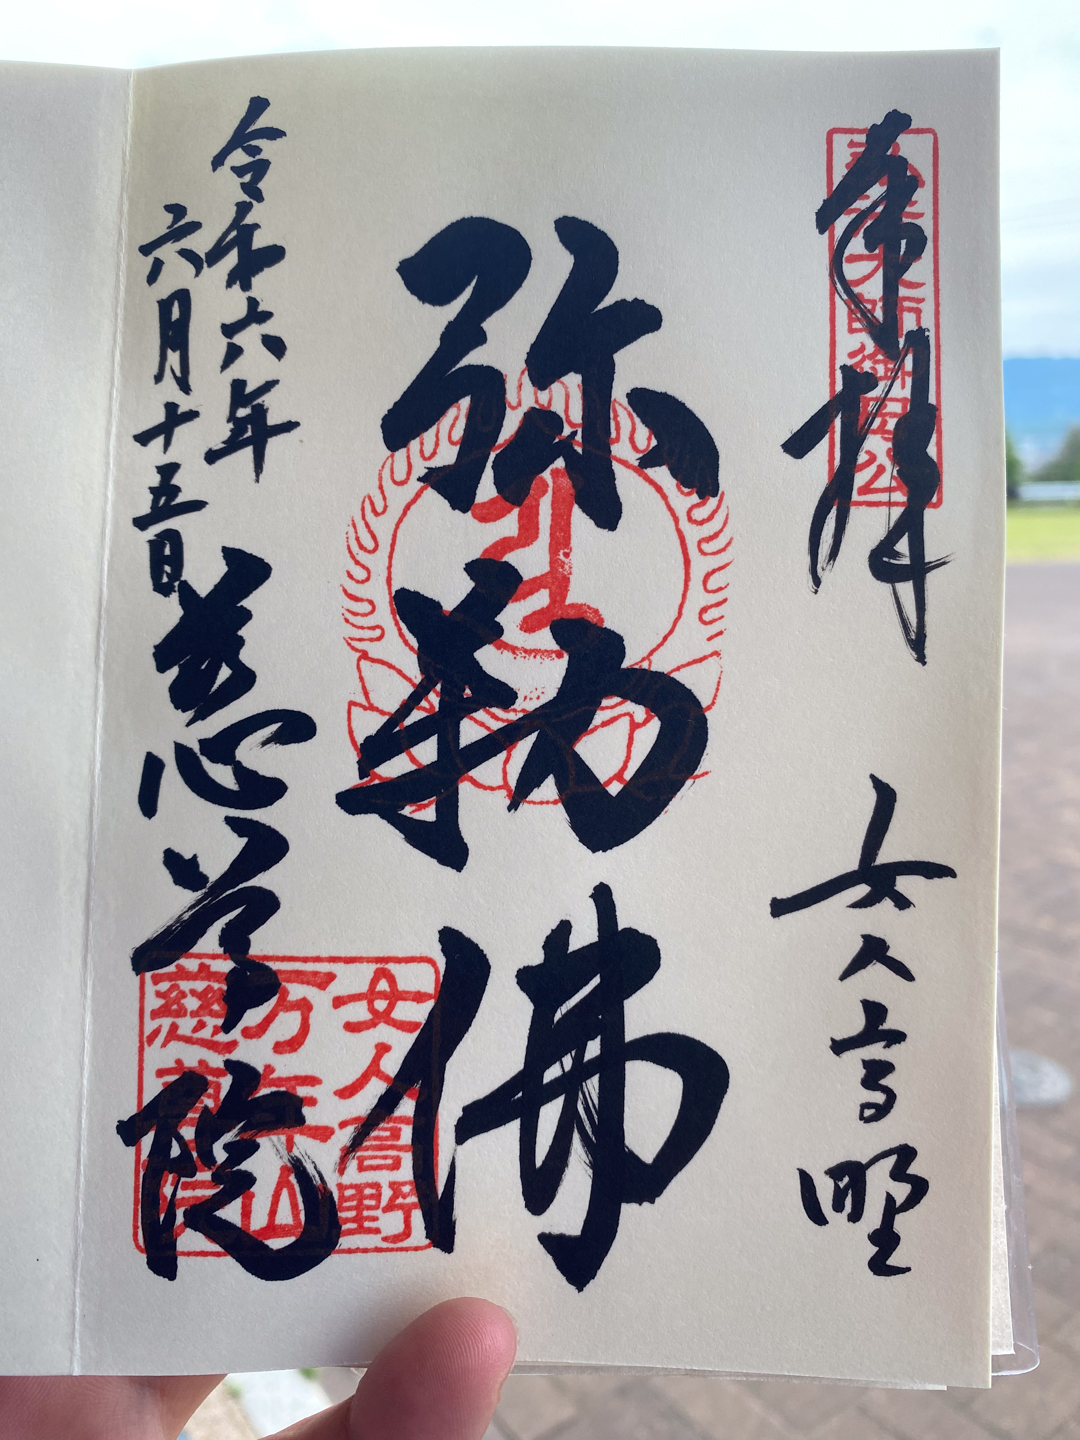 奉拝
弘法大師御母公
女人高野
弥勒佛
令和六年
六月十五日
慈尊院
女人高野
万年山
慈尊院